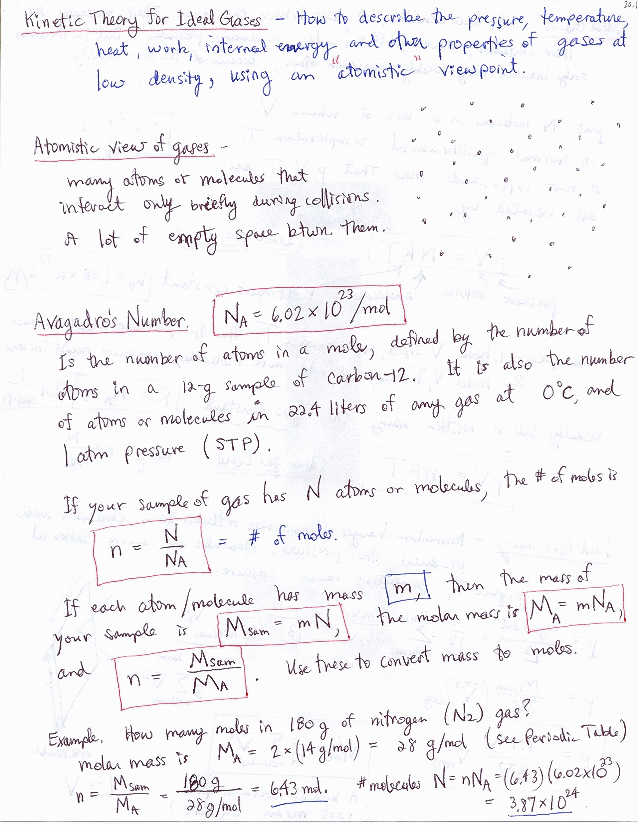 20.1
Kinetic Theory for Ideal Gases - How to describe the pressure, temperature,
heat, work, internal energy and other properties of gases at
low density, using an "atomistic" viewpoint.
Atomistic view of gases -
many atoms or molecules that
interact only briefly during collisions.
A lot of empty space btwn. them.
Avagadro's Number. N_A = 6.02 × 10^23/mol
Is the number of atoms in a mole, defined by the number of
atoms in a 12-g sample of carbon-12. It is also the number
of atoms or molecules in 22.4 liters of any gas at 0°C, and
1 atm pressure (STP).
If your sample of gas has N atoms or molecules, the # of moles is
n = N/N_A = # of moles.
If each atom/molecule has mass m, then the mass of
your sample is M_sam = mN, the molar mass is M_A = mN_A,
and n = M_sam/M_A. Use these to convert mass to moles.
Example. How many moles in 180 g of nitrogen (N_2) gas?
molar mass is M_A = 2×(14 g/mol) = 28 g/mol (see Periodic Table)
n = M_sam/M_A = 180 g/28 g/mol = 6.43 mol. # molecules N = nN_A = (6.43)(6.02×10^23)
= 3.87×10^24